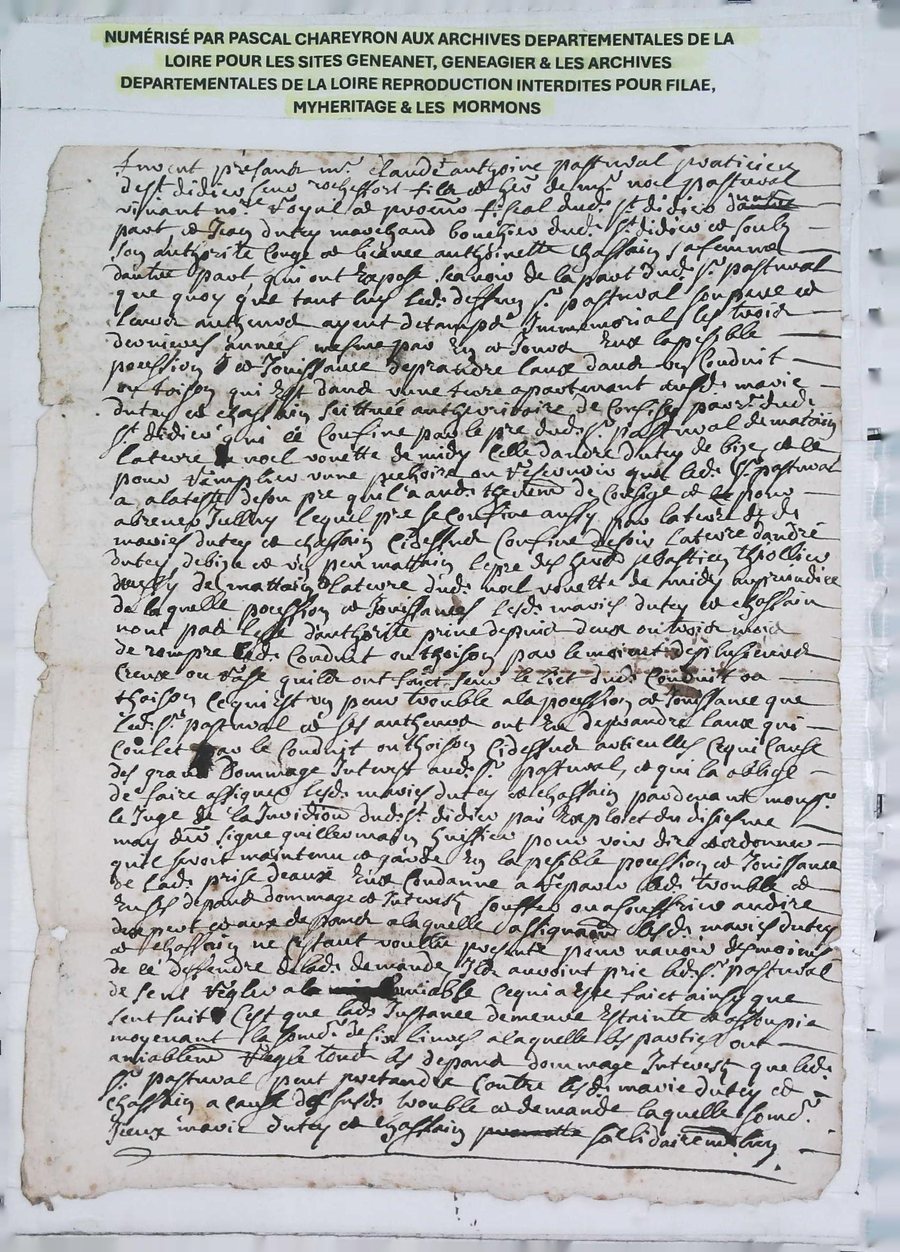 NUMÉRISÉ PAR PASCAL CHAREYRON AUX ARCHIVES DEPARTEMENTALES DE LA
LOIRE POUR LES SITES GENEANET, GENEAGIER & LES ARCHIVES
DEPARTEMENTALES DE LA LOIRE REPRODUCTION INTERDITES POUR FILAE,
MYHERITAGE & LES MORMONS
furent presants mre claude anthoine pastural praticien
de st didier seur rochefort filz et her de me noel pastural
vivant nore royal et procur fiscal dud. st didier d'une
part et Jean dutey marchand boucher dud. st didier et soubz
son authorite conge et licence anthoinette chassain sa femme
dautre part, qui ont expose scavoir de la part dud. sr pastural
que quoy que tant luy led. deffunt sr pastural son pere et
leurs autheurs ayent de temps Immemorial les trois
dernieres annees mesme par en et Jours eus la pesible
pocession et Jouissance de prandre leaux dans un Conduit
ou toison qui est dans une terre apartenant ausd. maries
dutey et chassain, scittuee au de par. dud.
st didier qui ce Confine par le pre dud. sr pastural de matain
la terre noel vouette de midy celle dandre dutey de bize et ce
pour remplir une pechoire ou reservoir que led. sr pastural
a a la teste de son pre quil a aud. et pour
abrever Icelluy lequel pre se Confine aussy par la terre desd.
maries dutey et chassain cidessus Confine de soir la terre dandre
dutey de bize et un peu mattain le pre des hers sebastien thollier
de mattain la terre dud. noel vouette de midy au preiudice
de laquelle pocession et Jouissances lesd. maries dutey et chassain
nont pas d'authorite prive depuis deux ou trois mois
de rompre led. Conduit ou thoison par le moien de plusieurs
Creux ou rase quils ont faict seur le lict dud. Conduit ou
thoison ce qui est un pour trouble a la pocession et Jouissance que
led. sr pastural et ses autheurs ont eu de prandre leaux qui
coulet par le Conduit ou thoison cidessus articulles ce qui Cause
des grands Dommage Interest aud. sr pastural, et qui la oblige
de faire assigner lesd. maries dutey et chassain pardevant monsr
le Juge de la Juridiction dud. st didier par exploict du disiesme
may der signe guillermain huissier pour voir dire et ordonner
quil seroit maintenu et garde en la pesible pocession et Jouissance
de lad. prise deaux eux Condanne a reparer led. trouble et
en ses depand dommage et Interest, souffrir ou a souffrir au dire
dexpert et aux depands a laquelle assignation lesd. maries dutey
et chassain ne cestant voullu presanté pour navoir des moiens
de ce deffendre de lad. demande Ils auroint prie led. sr pastural
de sent regler a la amiable ce qui a este faict ainsy que
sent suit Cest que lad. Instance demeure estainte et assoupie
moyenant la some de six livres a laquelle les parties ont
amiablemt regle tous les depand dommage Interest que led.
sr pastural peut pretandre contre lesd. marie dutey et
chassain a cause des susd. trouble et demande laquelle some
Iceux marie dutey et chassain sollidairemt